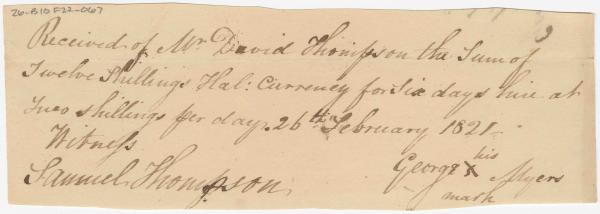 26-B10 F22-067
Received of Mr David Thompson the Sum of
Twelve Shillings Hal: Currency for Six days hire at
Two shillings per day. 26th February 1821
Witness
Samuel Thompson
George X his Myers
mark